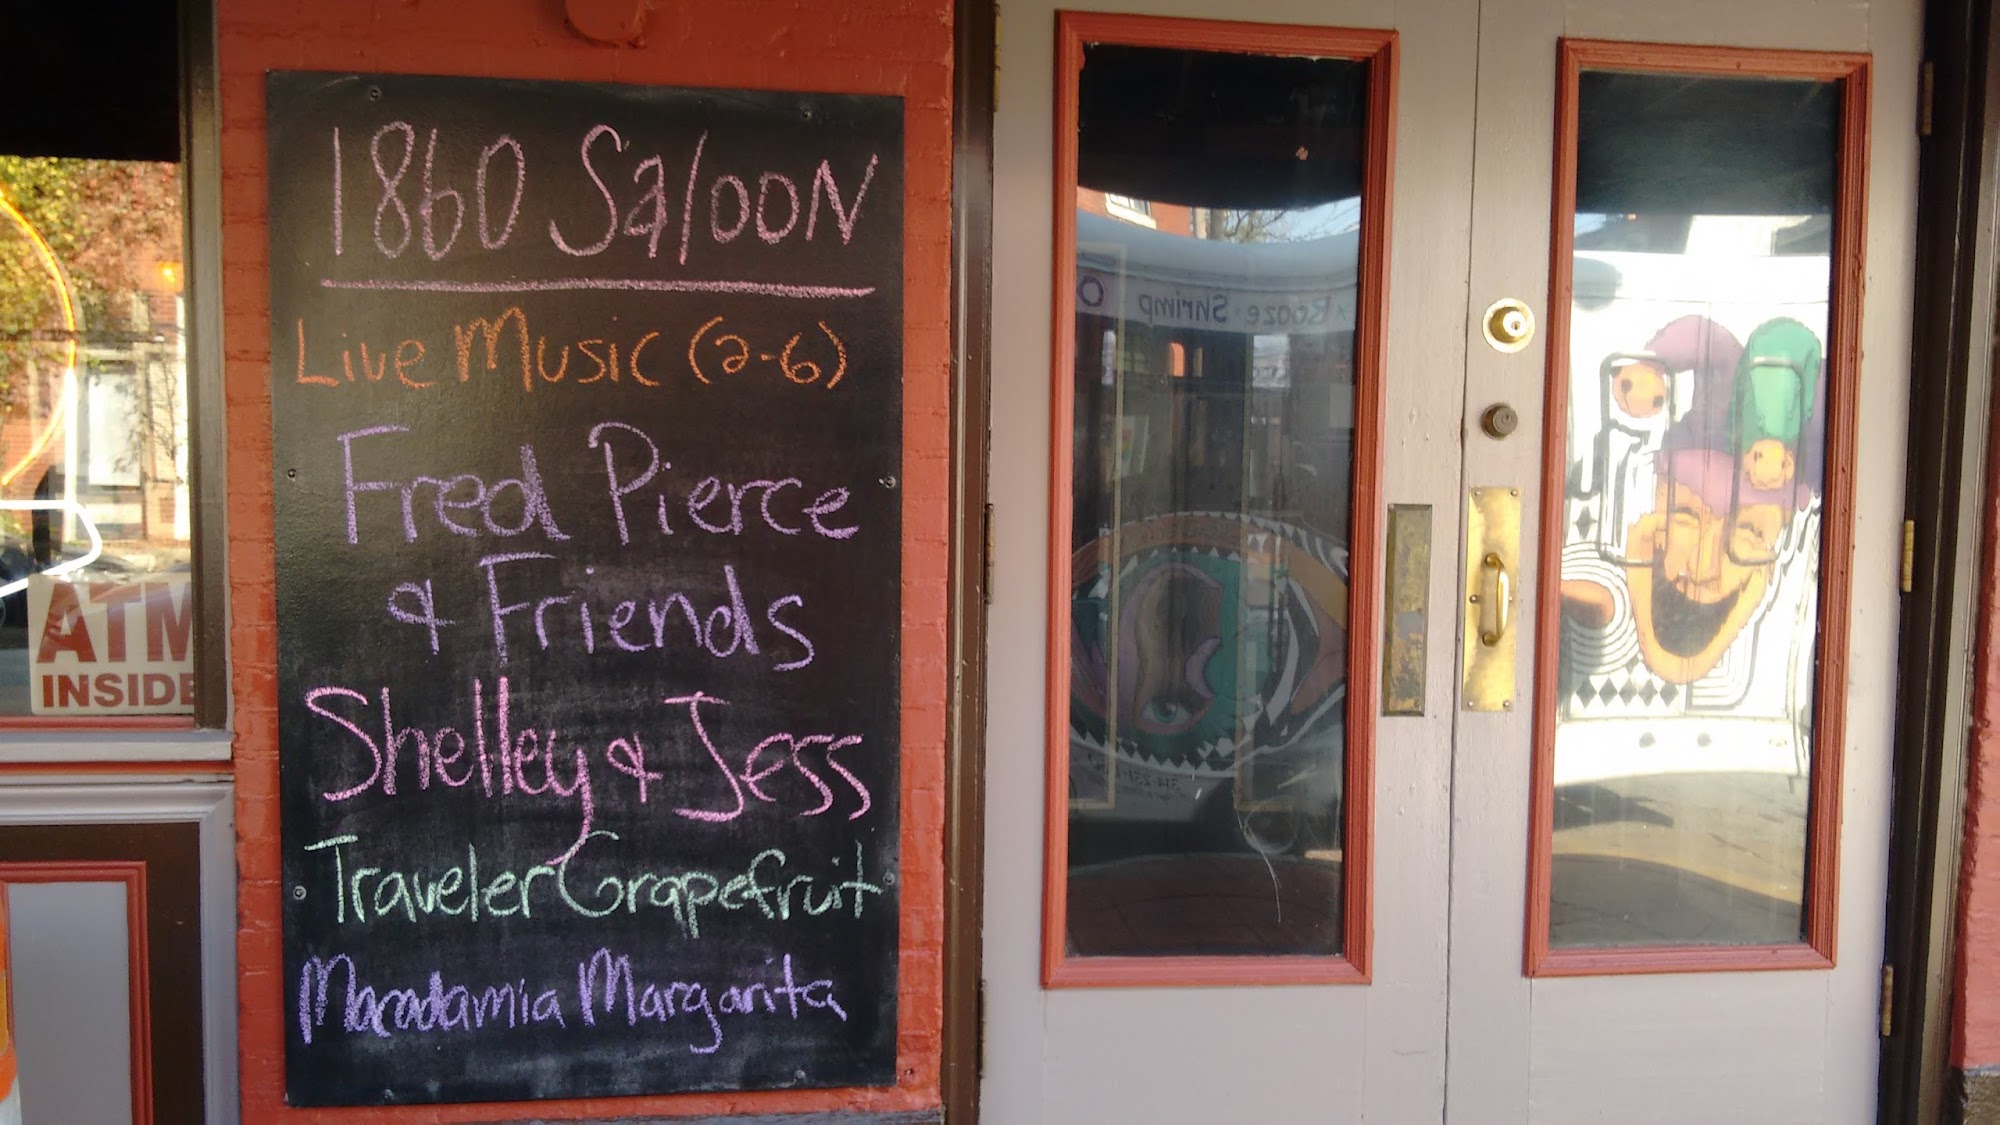 1860 Saloon
Live Music (2-6)
Fred Pierce
& Friends
Shelley & Jess
Traveler Grapefruit
Macadamia Margarita
ATM
INSIDE
Booze Shrimp